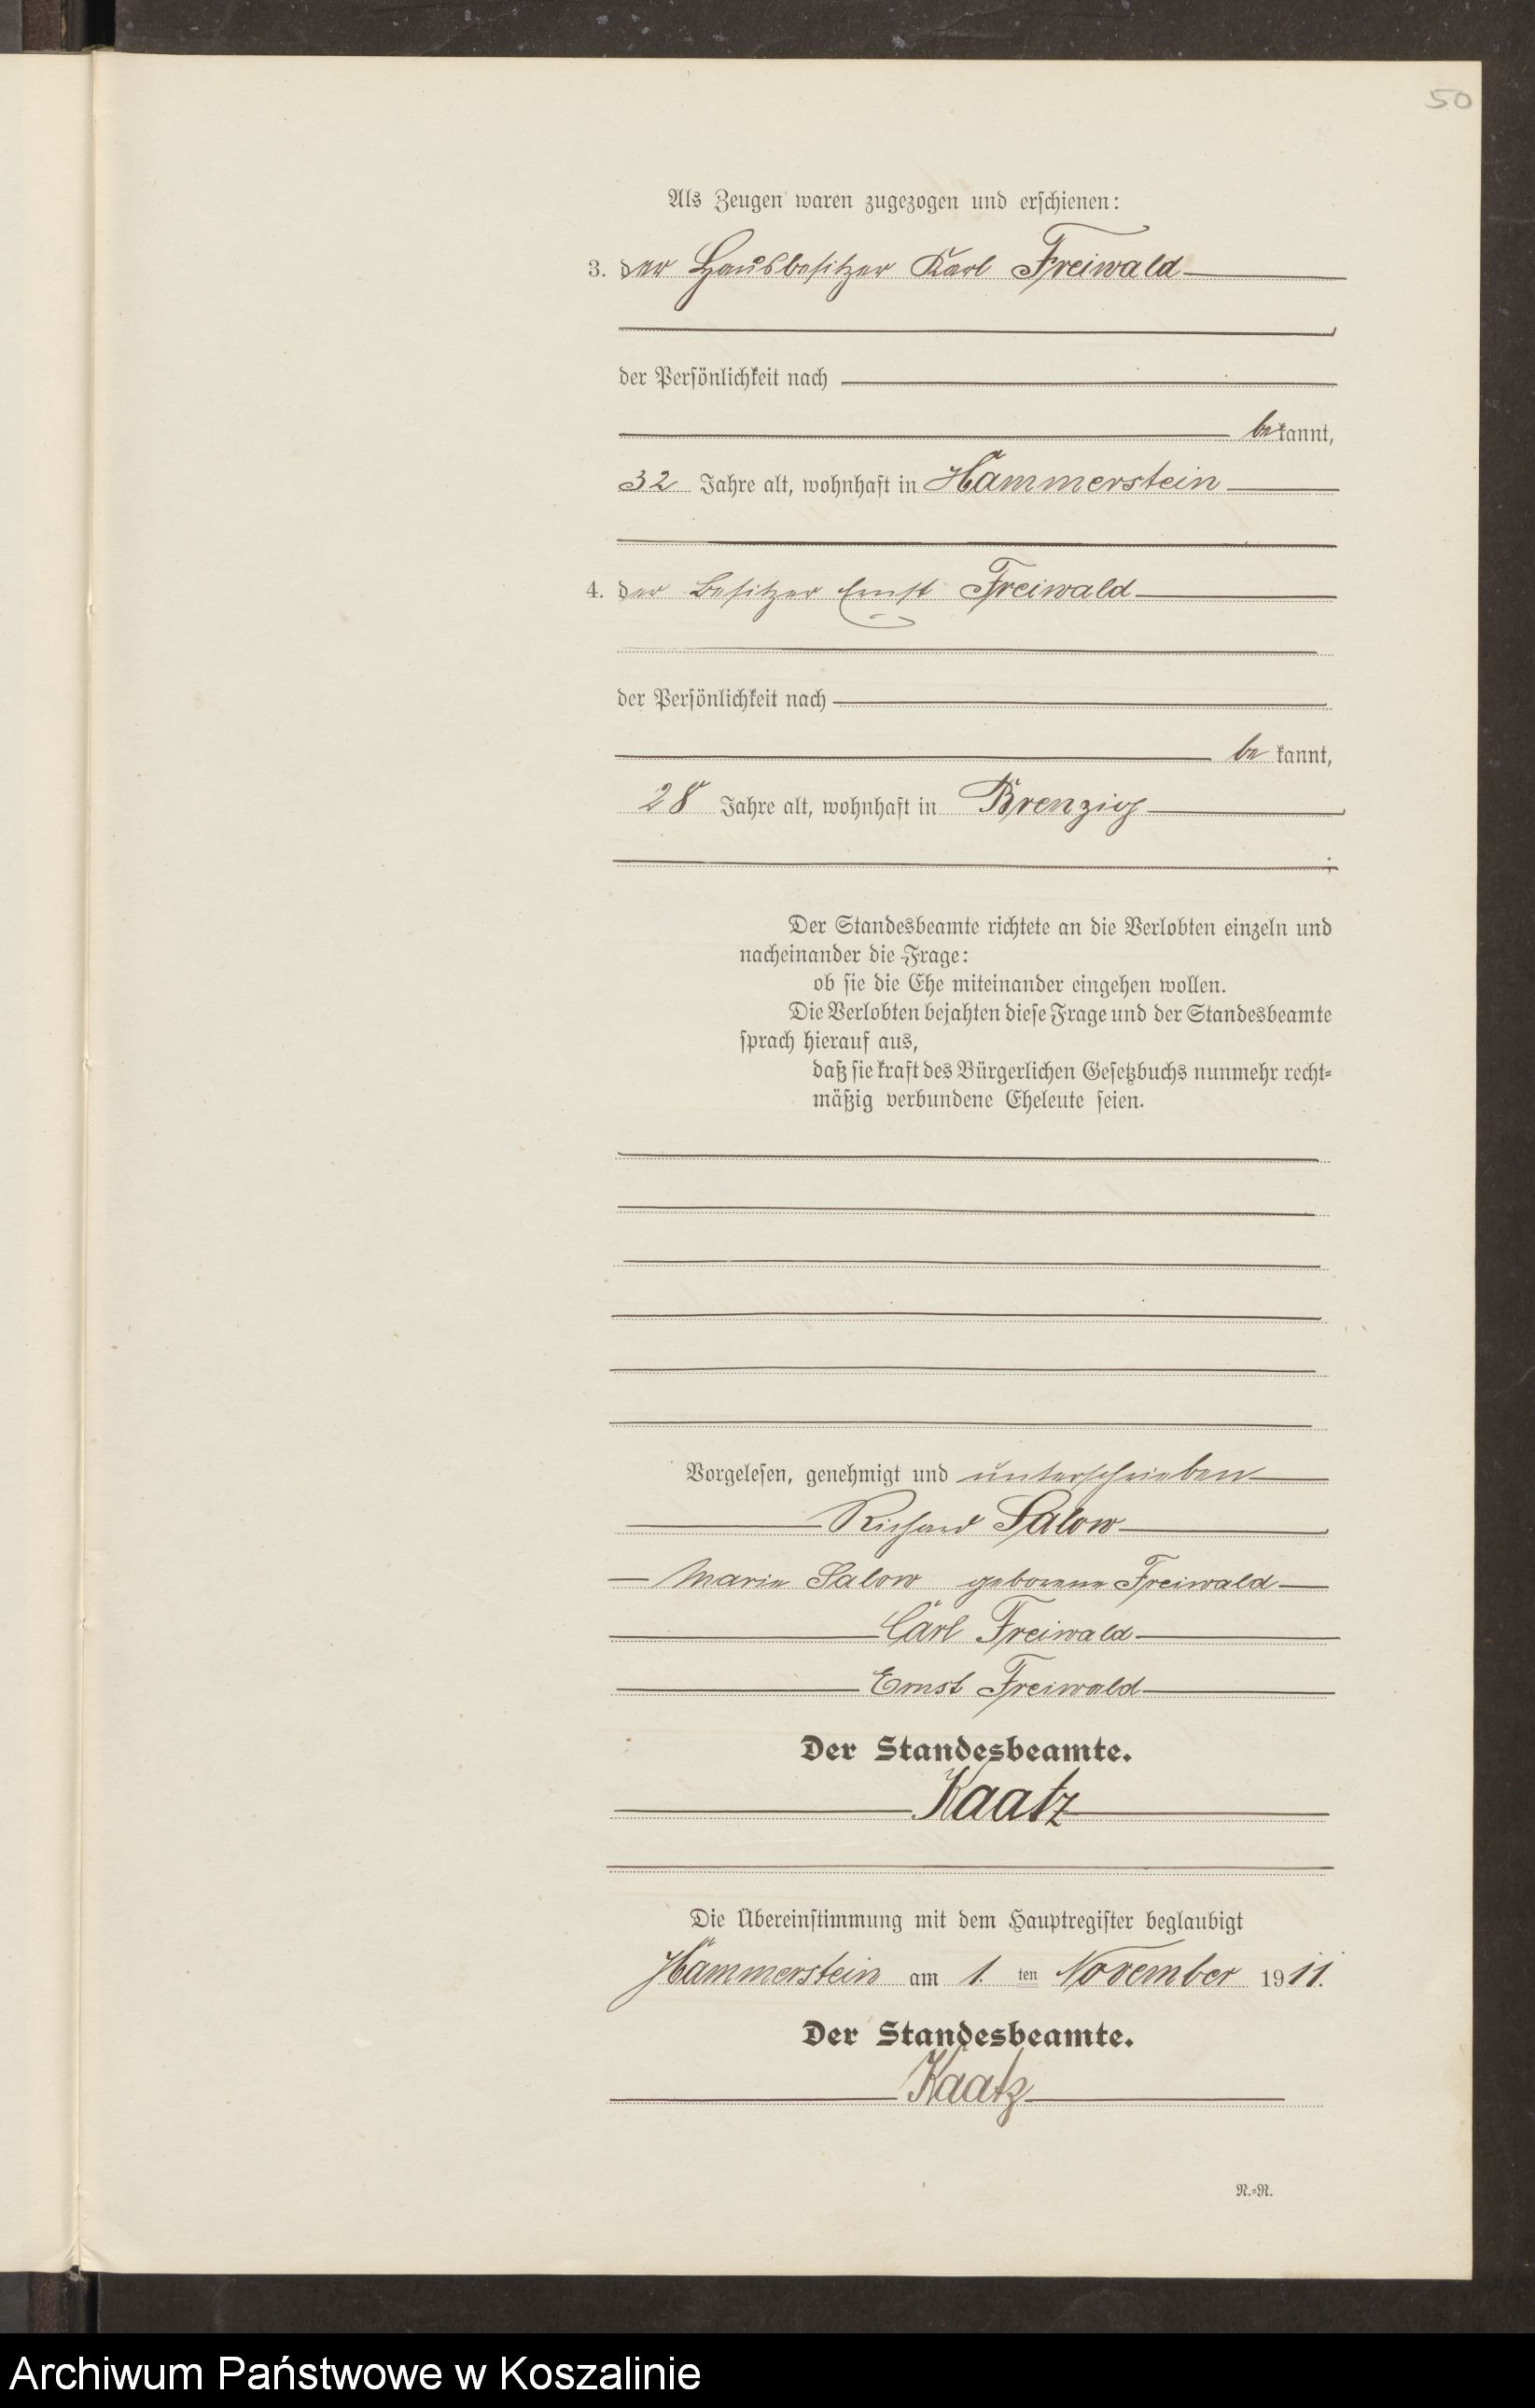 50
Als Zeugen waren zugezogen und erschienen:
3. der Hausbesitzer Karl Freiwald
der Persönlichkeit nach
bekannt,
32 Jahre alt, wohnhaft in Hammerstein
4. der Besitzer Ernst Freiwald
der Persönlichkeit nach
be kannt,
28 Jahre alt, wohnhaft in Brenzig
Der Standesbeamte richtete an die Verlobten einzeln und
nacheinander die Frage:
ob sie die Ehe miteinander eingehen wollen.
Die Verlobten bejahten diese Frage und der Standesbeamte
sprach hierauf aus,
daß sie kraft des Bürgerlichen Gesetzbuchs nunmehr recht-
mäßig verbundene Eheleute seien.
Vorgelesen, genehmigt und unterschrieben
Richard Salow
Marie Salow geborene Freiwald
Carl Freiwald
Ernst Freiwald
Der Standesbeamte.
Kaatz
Die Übereinstimmung mit dem Hauptregister beglaubigt
Hammerstein am 1. ten November 1911.
Der Standesbeamte.
Kaatz
N.-R.
Archiwum Państwowe w Koszalinie